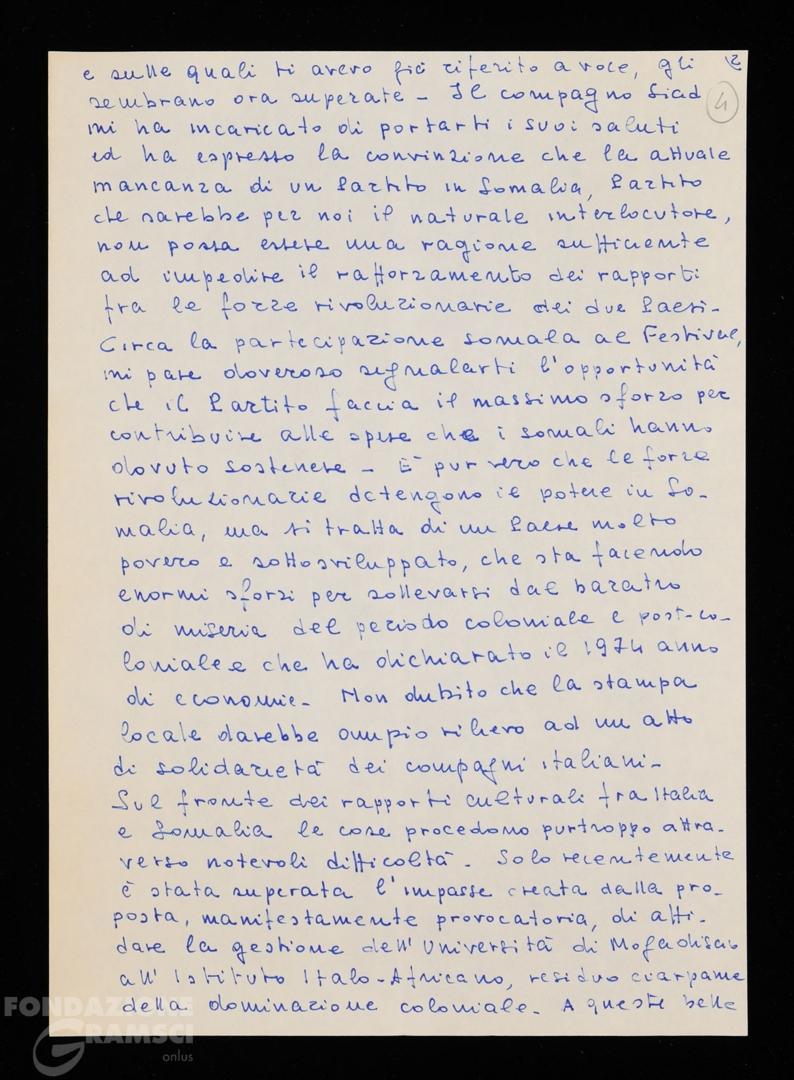 2
4
e sulle quali ti avevo già riferito a voce, gli
sembrano ora superate - Il compagno Siad
mi ha incaricato di portarti i suoi saluti
ed ha espresso la convinzione che la attuale
mancanza di un Partito in Somalia, Partito
che sarebbe per noi il naturale interlocutore,
non possa essere una ragione sufficiente
ad impedire il rafforzamento dei rapporti
fra le forze rivoluzionarie dei due Paesi -
Circa la partecipazione somala al Festival,
mi pare doveroso segnalarti l'opportunità
che il Partito faccia il massimo sforzo per
contribuire alle spese che i somali hanno
dovuto sostenere - È pur vero che le forze
rivoluzionarie detengono il potere in So-
malia, ma si tratta di un Paese molto
povero e sottosviluppato, che sta facendo
enormi sforzi per sollevarsi dal baratro
di miseria del periodo coloniale e post-co-
loniale e che ha dichiarato il 1974 anno
di economie - Non dubito che la stampa
locale darebbe ampio rilievo ad un atto
di solidarietà dei compagni italiani -
Sul fronte dei rapporti culturali fra Italia
e Somalia le cose procedono purtroppo attra-
verso notevoli difficoltà - Solo recentemente
è stata superata l'impasse creata dalla pro-
posta, manifestamente provocatoria, di affi-
dare la gestione dell'Università di Mogadiscio
all'Istituto Italo-Africano, residuo ciarpame
della dominazione coloniale - A queste belle
FONDAZIONE
GRAMSCI
onlus